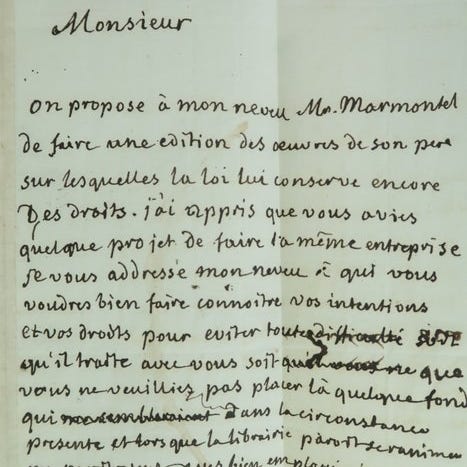 Monsieur
On propose à mon neveu Mr. Marmontel
de faire une edition des œuvres de son pere
sur lesquelles la loi lui conserve encore
Des droits. j'ai appris que vous aviés
quelque projet de faire la même entreprise
je vous addresse mon neveu à qui vous
voudres bien faire connoitre vos intentions
et vos droits pour eviter toute difficulté
qu'il traite avec vous soit que
vous ne veuilliés pas placer là quelque fond
qui dans la circonstance
presente et lors que la librairie paroit se ranimer
bien